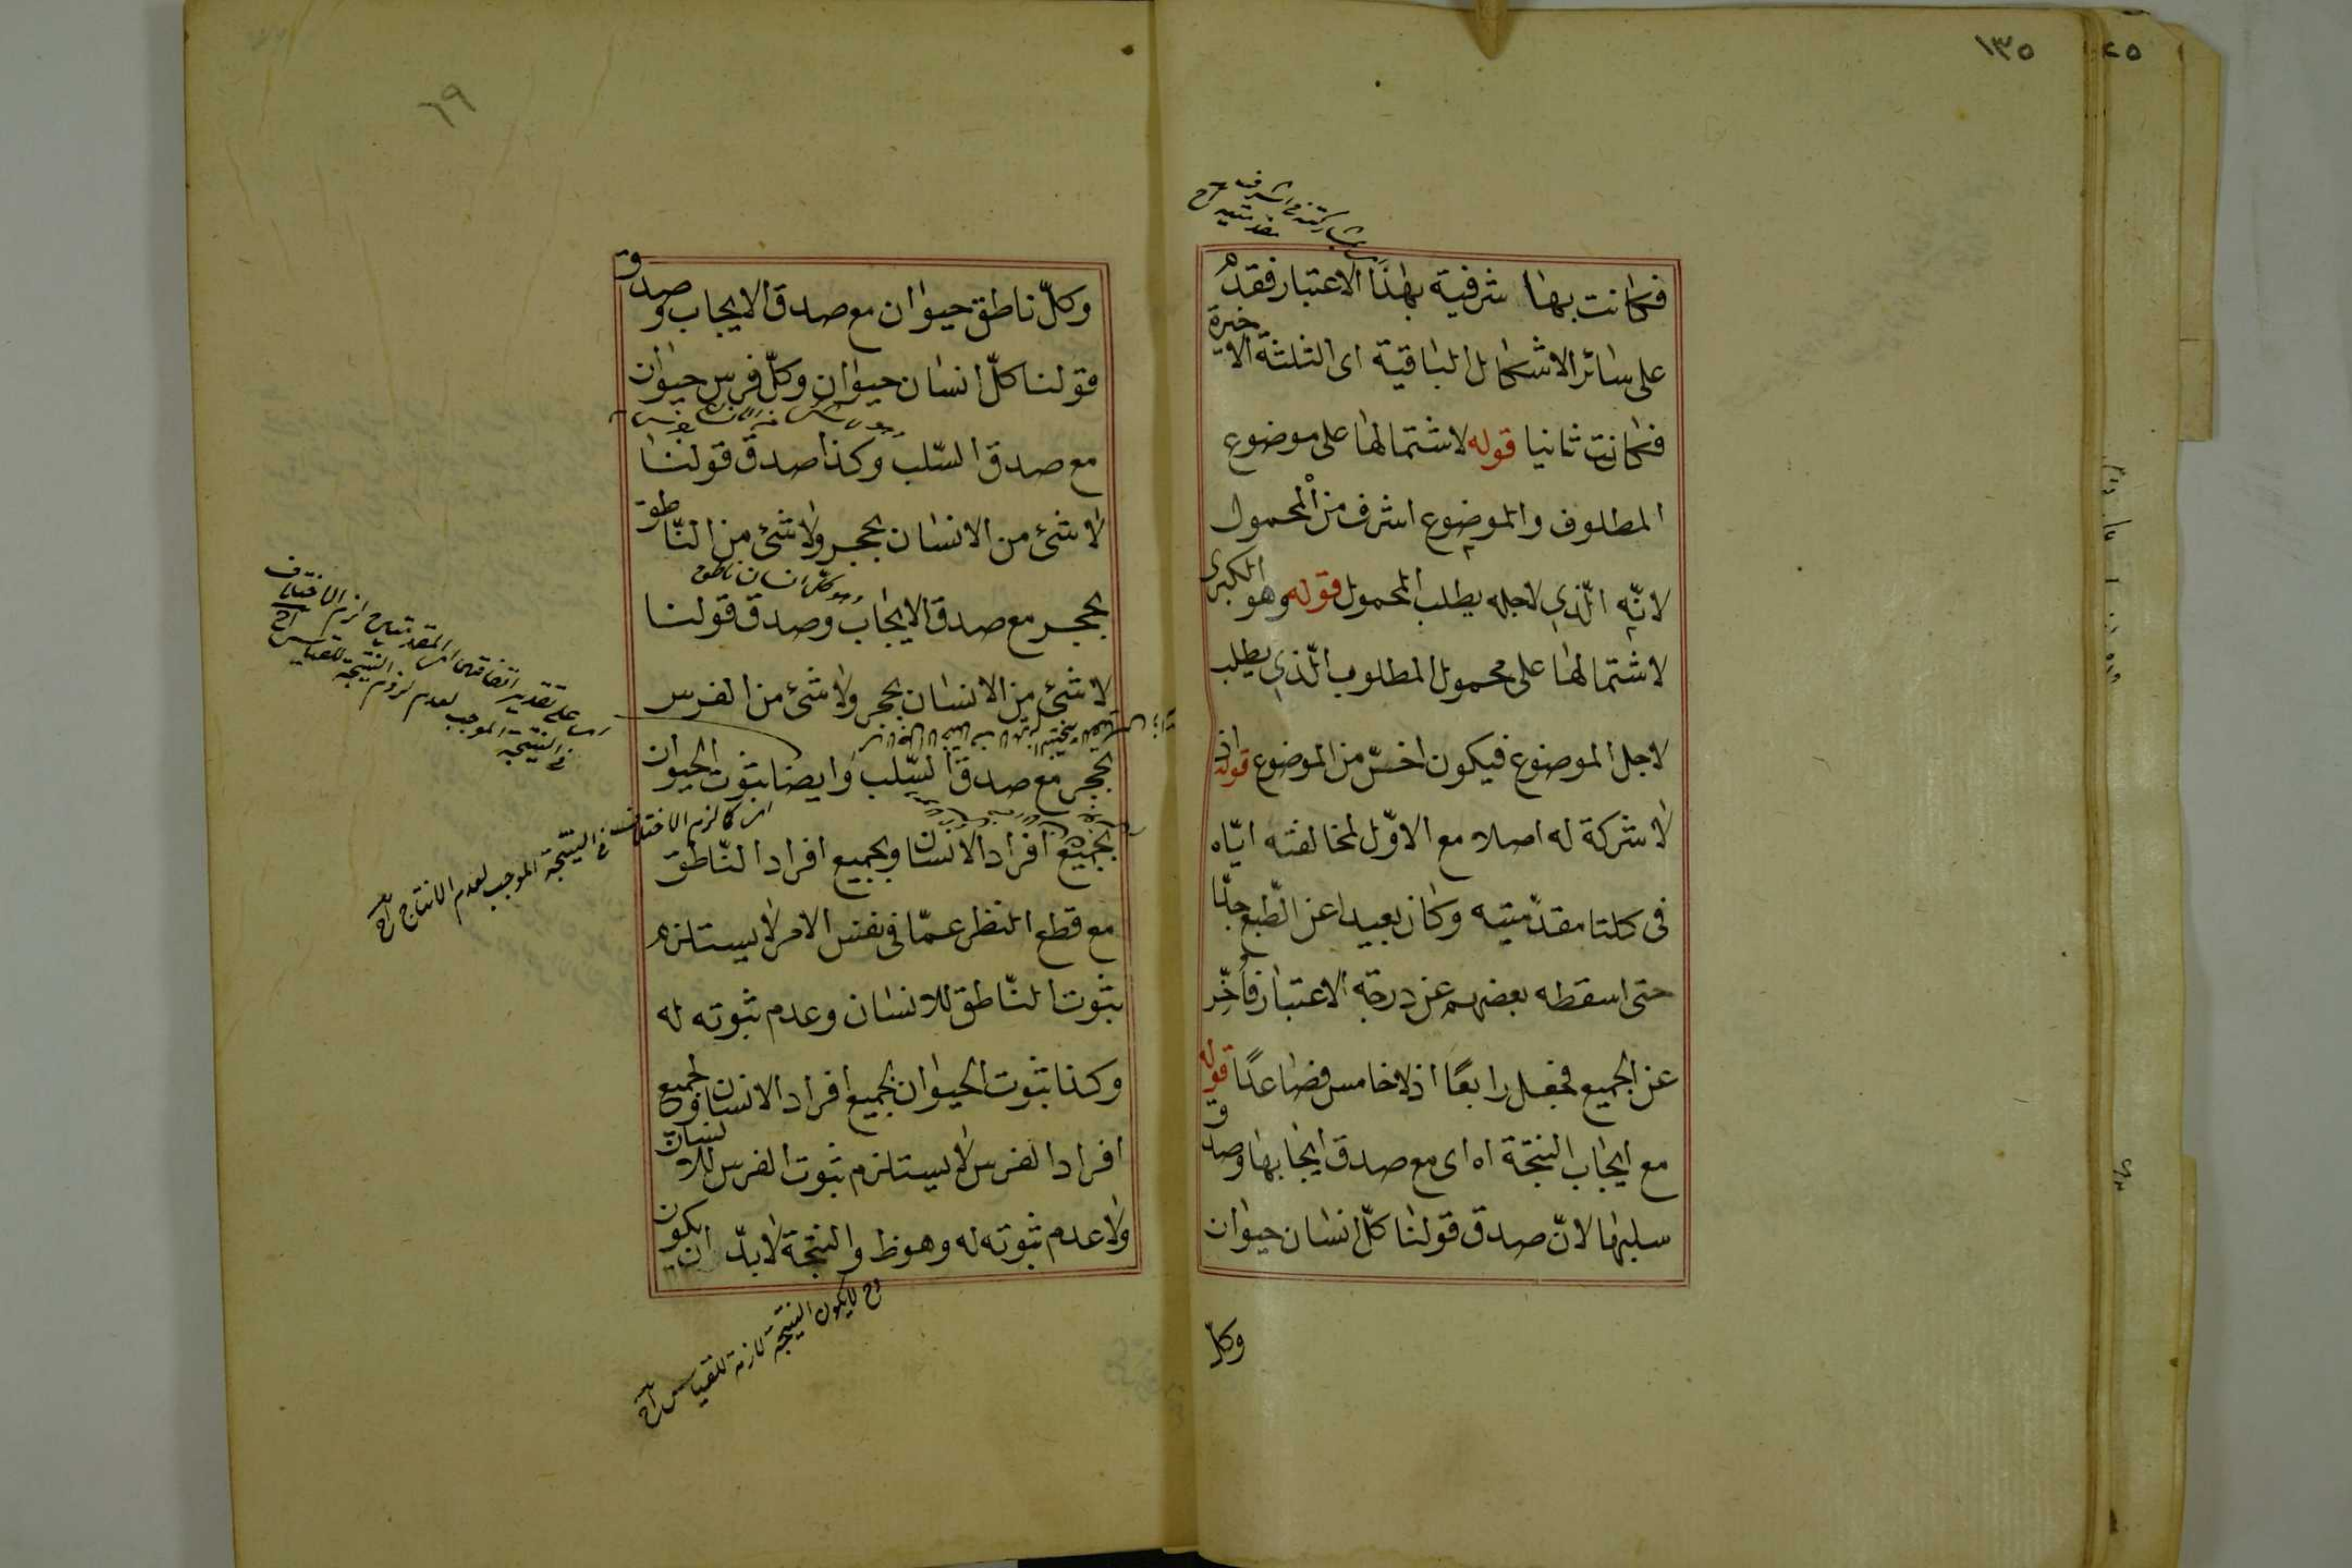 ١٣٥
فكانت بها شرفية بهذا الاعتبار فقدم
على سائر الاشكال الباقية اى الثلثة الاخيرة
فكانت ثانيا قوله لاشتمالها على موضوع
المطلوب والموضوع اشرف من المحمول
لانّه الّذى لاجله يطلب المحمول قوله وهو الكبرى
لاشتمالها على محمول المطلوب الّذى يطلب
لاجل الموضوع فيكون اخسّ من الموضوع قوله اذ
لا شركة له اصلا مع الاوّل لمخالفته ايّاه
فى كلتا مقدّمتيه وكان بعيدا عن الطّبع جدّا
حتى اسقطه بعضهم عن درجة الاعتبار فأخّر
عن الجميع فجعل رابعًا اذ لا خامس فضاعدًا قوله
مع ايجاب النتجة اه اى مع صدق ايجابها وصدق
سلبها لانّ صدق قولنا كلّ انسان حيوان
وكلّ
٦٩
وكلّ ناطق حيوان مع صدق الايجاب وصدق
قولنا كلّ انسان حيوان وكلّ فرس حيوان
مع صدق السّلب وكذا صدق قولنا
لا شئ من الانسان بحجر ولا شئ من النّاطق
وهو كل انسان ناطق
بحجر مع صدق الايجاب وصدق قولنا
لا شئ من الانسان بحجر ولا شئ من الفرس
بحجر مع صدق السّلب وايضا ثبوت الحيوان
لجميع افراد الانسان ولجميع افراد النّاطق
مع قطع النظر عمّا فى نفس الامر لا يستلزم
ثبوت النّاطق للانسان وعدم ثبوته له
وكذا ثبوت الحيوان لجميع افراد الانسان ولجميع
افراد الفرس لا يستلزم ثبوت الفرس للانسان
ولا عدم ثبوته له وهو ظ والنتجة لابدّ ان يكون
فى النتيجة الموجب لعدم لزوم النتيجة للقياس
لزم الاختلاف فى النتيجة الموجب لعدم الانتاج
لا يكون النتيجة لازمة للقياس